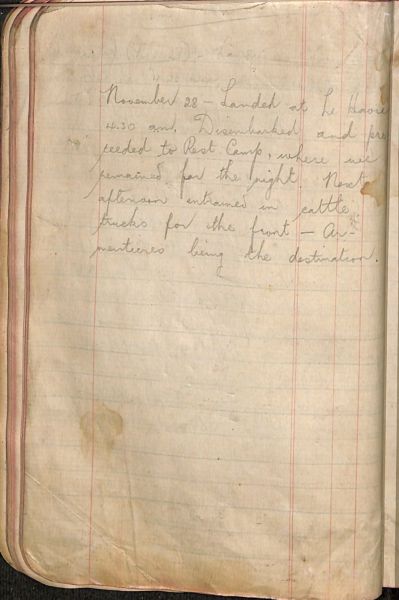 November 28 – Landed at Le Havre
4.30 am. Disembarked and pro
ceeded to Rest Camp, where we
remained for the night. Next
afternoon entrained in cattle
trucks for the front – Ar-
mentieres being the destination.